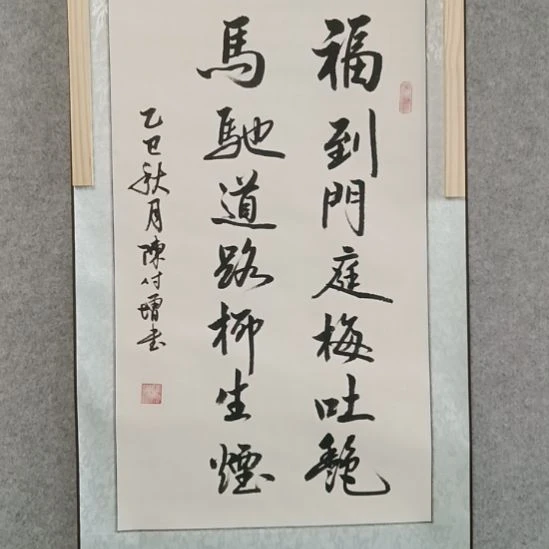 福到門庭梅吐艷
馬馳道路柳生煙
乙巳秋月陳付增書